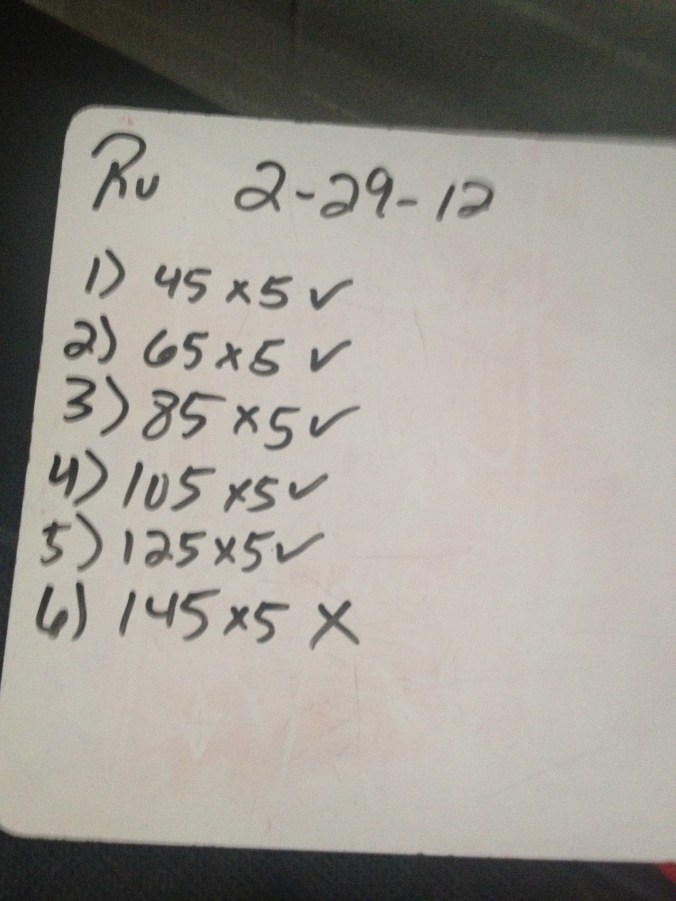 Ru 2-29-12
1) 45 x 5 ✓
2) 65 x 5 ✓
3) 85 x 5 ✓
4) 105 x 5 ✓
5) 125 x 5 ✓
6) 145 x 5 X